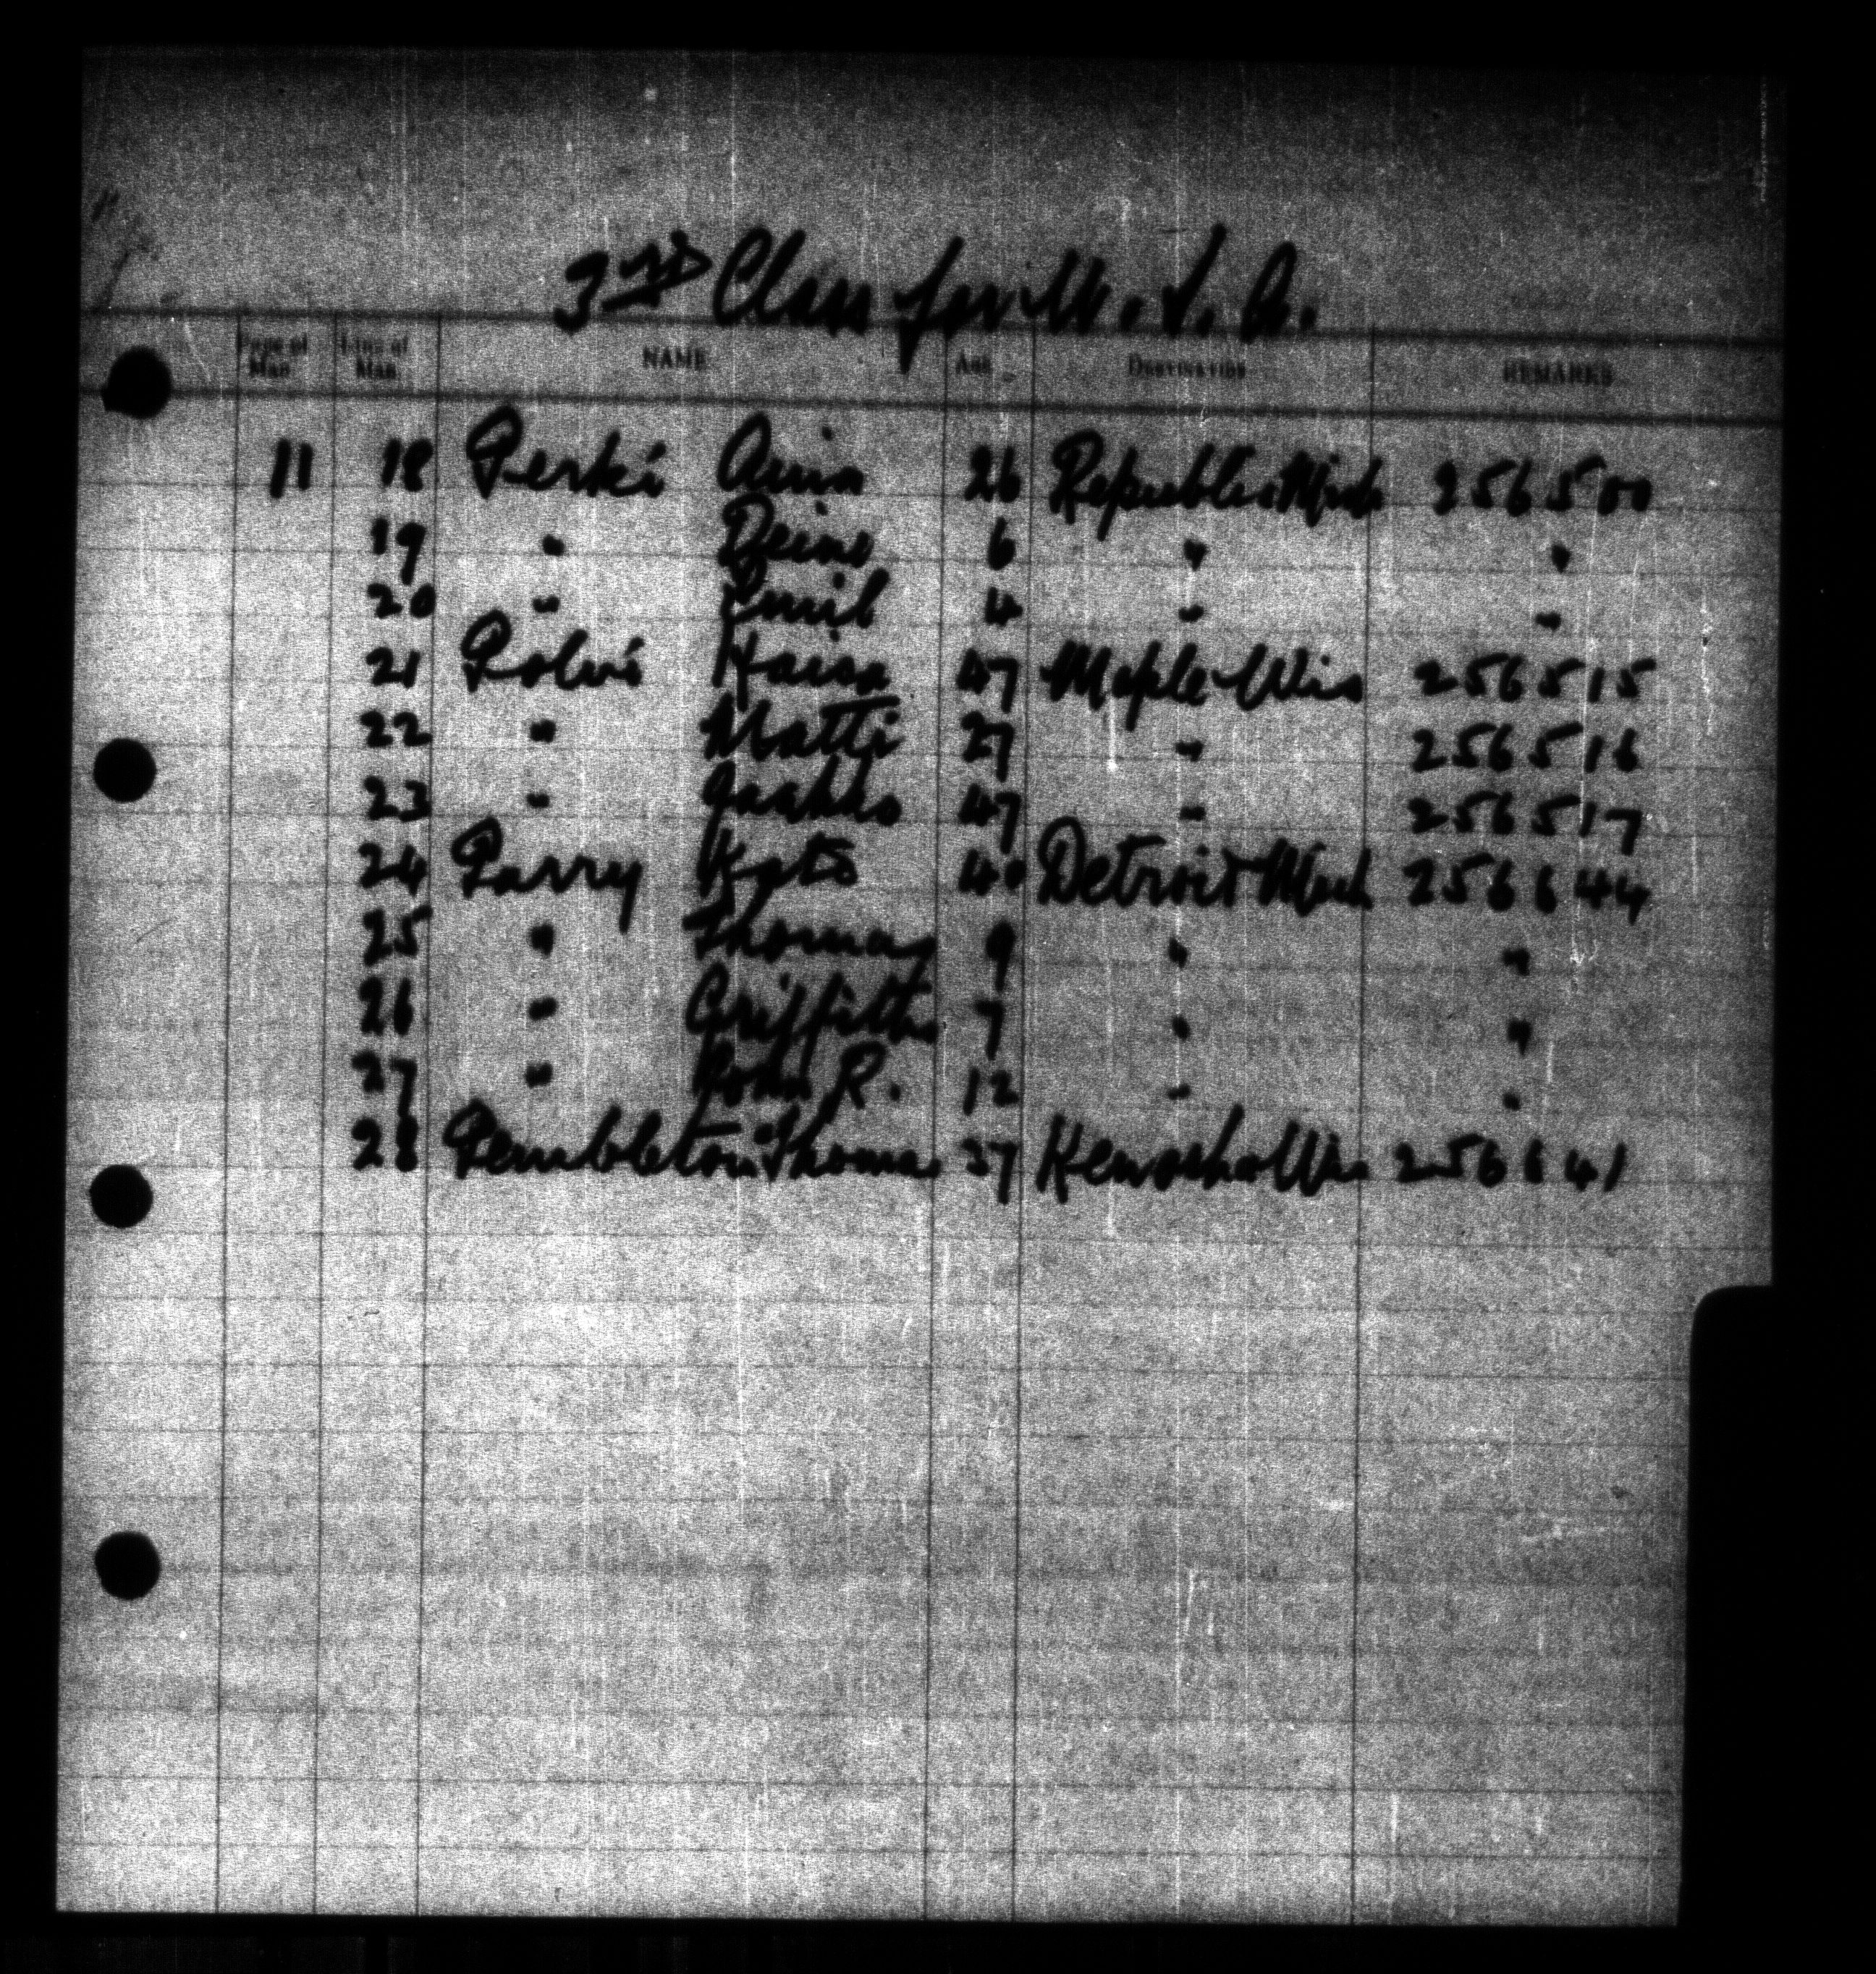 3rd Class for U.S.A.
Page of Man. Line of Man. NAME Age Destination REMARKS
11 18 Perki Aina 26 Republic Mich 256500
19 " Reino 6 " "
20 " Emil 4 " "
21 Polvi Kaisa 47 Maple Wis 256515
22 " Matti 27 " 256516
23 " Jaakko 47 " 256517
24 Parry Kate 40 Detroit Mich 256644
25 " Thomas 9 " "
26 " Griffith 7 " "
27 " John R. 12 " "
28 Pembleton Thomas 37 Kenosha Wis 256641